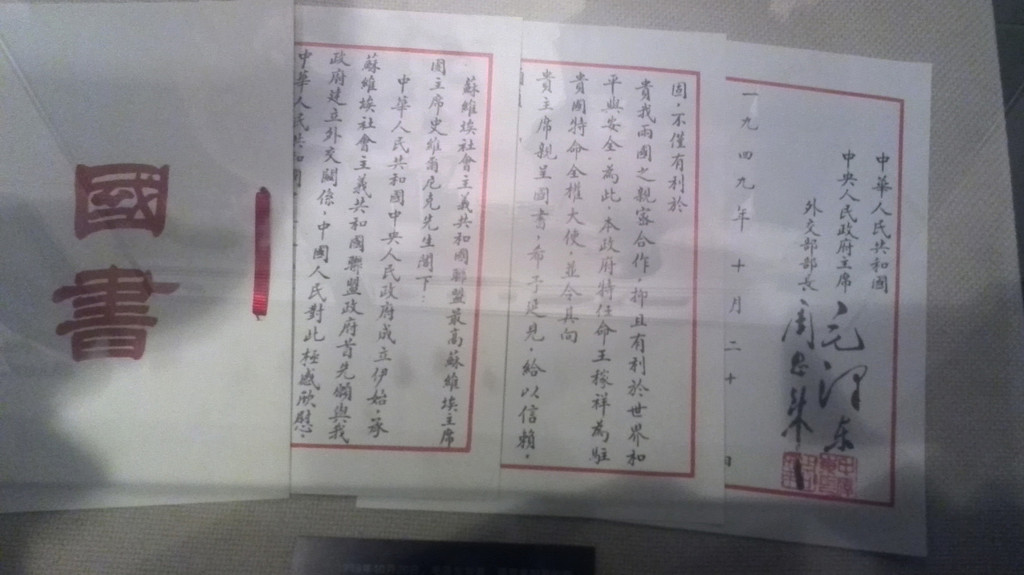 國書
蘇維埃社會主義共和國聯盟最高蘇維埃主席
團主席史維爾尼克先生閣下：
中華人民共和國中央人民政府成立伊始，承
蘇維埃社會主義共和國聯盟政府首先願與我
政府建立外交關係，中國人民對此極感欣慰。
中華人民共和國
固，不僅有利於
貴我兩國之親密合作，抑且有利於世界和
平與安全。為此，本政府特任命王稼祥為駐
貴國特命全權大使，並令其向
貴主席親呈國書，希予延見，給以信賴，
中華人民共和國
中央人民政府主席 毛澤東
外交部部長 周恩來
一九四九年十月二十日